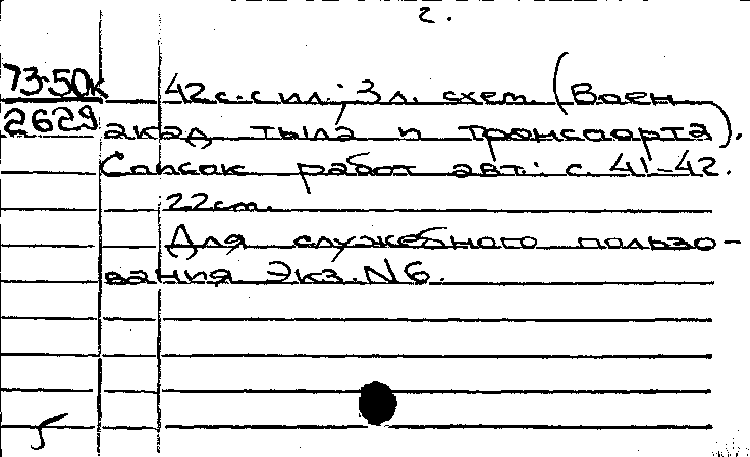 2.
73-50к
2629
42 с. с ил.; 3 л. схем. (Воен.
акад тыла и транспорта).
Список работ авт.: с. 41-42.
22 cm.
Для служебного пользо-
вания Экз. N 6.
5